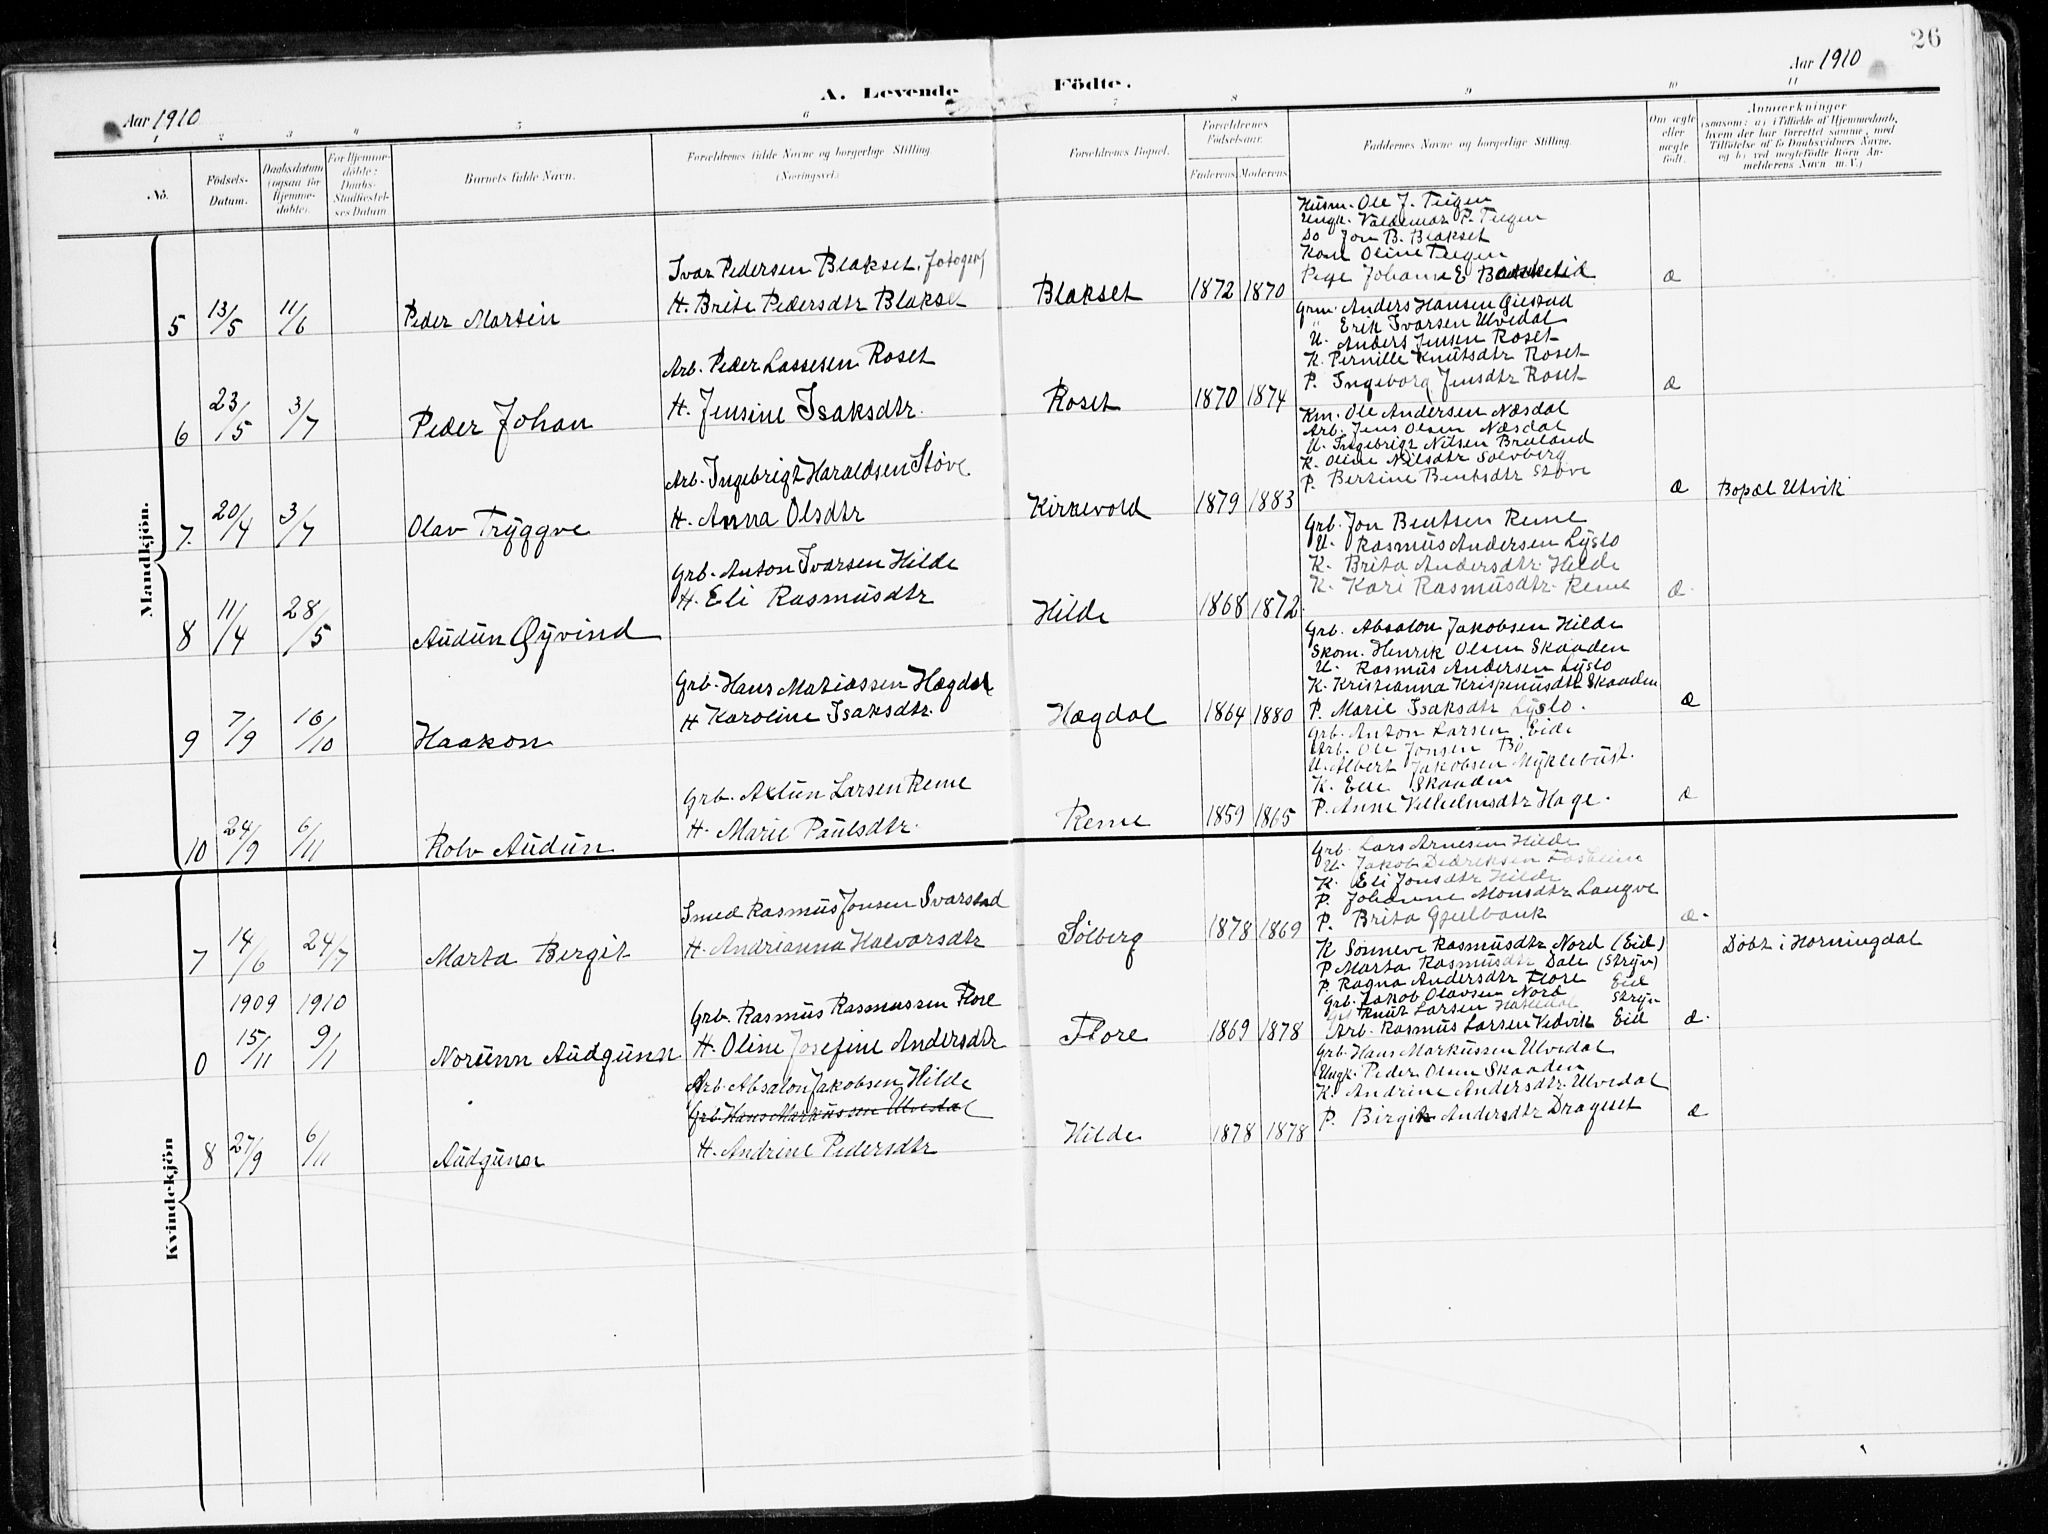 26
Aar 1910
Aar 1910
A. Levende Födte.
1 2 3 4 5 6 7 8 9 10 11
No.
Födsels-Datum.
Daabsdatum (ogsaa for Hjemme-døbte).
For Hjemme-döbte: Daabs-Stadfæstel-ses Datum.
Barnets fulde Navn.
Forældrenes fulde Navne og borgerlige Stilling (Næringsvei.)
Forældrenes Bopæl.
Forældrenes Födselsaar.
Faderens. Moderens.
Faddernes Navne og borgerlige Stilling.
Om ægte eller uægte født.
Anmærkninger
(saasom: a) i Tilfælde af Hjemmedaab, hvem der har forrettet samme, med Tilføielse af to Daabsvidners Navne, og b) ved uægtefödte Börn Anmelderens Navn m. V.)
Mandkjön.
5 13/5 11/6 Peder Martin
Ivar Pedersen Blakset, fotograf
H. Brite Pedersdtr Blakset
Blakset 1872 1870
Husm. Ole J. Tiigen
Ungk. Valdemar P. Tiigen
Do Jon B. Blakset
Kone Oline Tiigen
Pige Johanne E
æ
6 23/5 3/7 Peder Johan
Arb. Peder Lassesen Roset
H. Jensine Isaksdtr.
Roset 1870 1874
Grm. Anders Hansen Giestad
" Erik Ivarsen Ulvedal
U. Anders Jensen Roset
K. Pernille Knutsdtr Roset
P. Ingeborg Jensdtr Roset
æ
7. 20/4 3/7 Olav Tryggve
Arb. Ingebrigt Haraldsen Støve
H. Anna Olsdtr
Kirkevold 1879 1883
Km. Ole Andersen Næsdal
Arb. Jens Olsen Næsdal
U. Ingebrigt Nilsen Bruland
K. Oline Nilsdtr Solvberg
P. Bertine Bentsdtr Støve
æ Bopæl Utvik
8 11/4 28/5 Audun Øyvind
Grb. Anton Ivarsen Hilde
H. Eli Rasmusdtr
Hilde 1868 1872.
Grb. Jon Bentsen Reme
U. Rasmus Andersen Lyslo
K. Brita Andersdtr. Hilde
K. Kari Rasmusdtr. Reme
æ.
9 7/9 16/10 Haakon
Grb. Hans Matiassen Hægdal
H Karoline Isaksdtr.
Hægdal 1864 1880
Grb. Absalon Jakobsen Hilde
Skom. Henrik Olsen Skaaden
U. Rasmus Andersen Lyslo
K. Kristianna Krispinusdtr Skaaden
P. Marie Isaksdtr Lyslo.
æ
10 24/9 6/11 Rolv Audun
Grb. Axtun Larsen Reme
H. Marie Paulsdtr.
Reme 1859 1865
Grb. Anton Larsen Eide
Arb. Ole Jonsen Bø
U. Albert Jakobsen Myklebust.
K. Elle Skaaden
P. Anne Vilhelmsdtr Hage.
æ
Kvindekjön
7 14/6 24/7 Marta Bergit
Smed Rasmus Jonsen Svarstad
H. Andrianna Halvarsdtr
Sølberg 1878 1869
Grb. Lars Arnesen Hilde
U. Jakob Didriksen
K. Eli Jonsdtr Hilde
P. Johanne Monsdtr Langve
P. Brita Gjelbank
æ.
1909 1910
0 15/11 9/1 Norunn Audgunn
Grb. Rasmus Rasmussen Flore
H. Oline Josefine Andersdtr
Flore 1869 1878
K Sønneve Rasmusdtr Nord (Eid)
P. Marta Rasmusdtr Dale (Stryn)
P. Ragna Andersdtr Flore Eid
Grb. Jakob Olavsen Nord Stryn
Knut Larsen
Arb. Rasmus Larsen Vedvik Eid
æ. Døbt i Horningdal
8 27/9 6/11 Audgunn
Arb. Absalon Jakobsen Hilde
Grb. Hans Markussen Ulvedal
H. Andrine Pedersdtr
Hilde 1878 1878
Grb. Hans Markussen Ulvedal
Ungk. Peder Olsen Skaaden
K. Andrine Andersdtr. Ulvedal
P. Birgit Andersdtr Drageset
æ